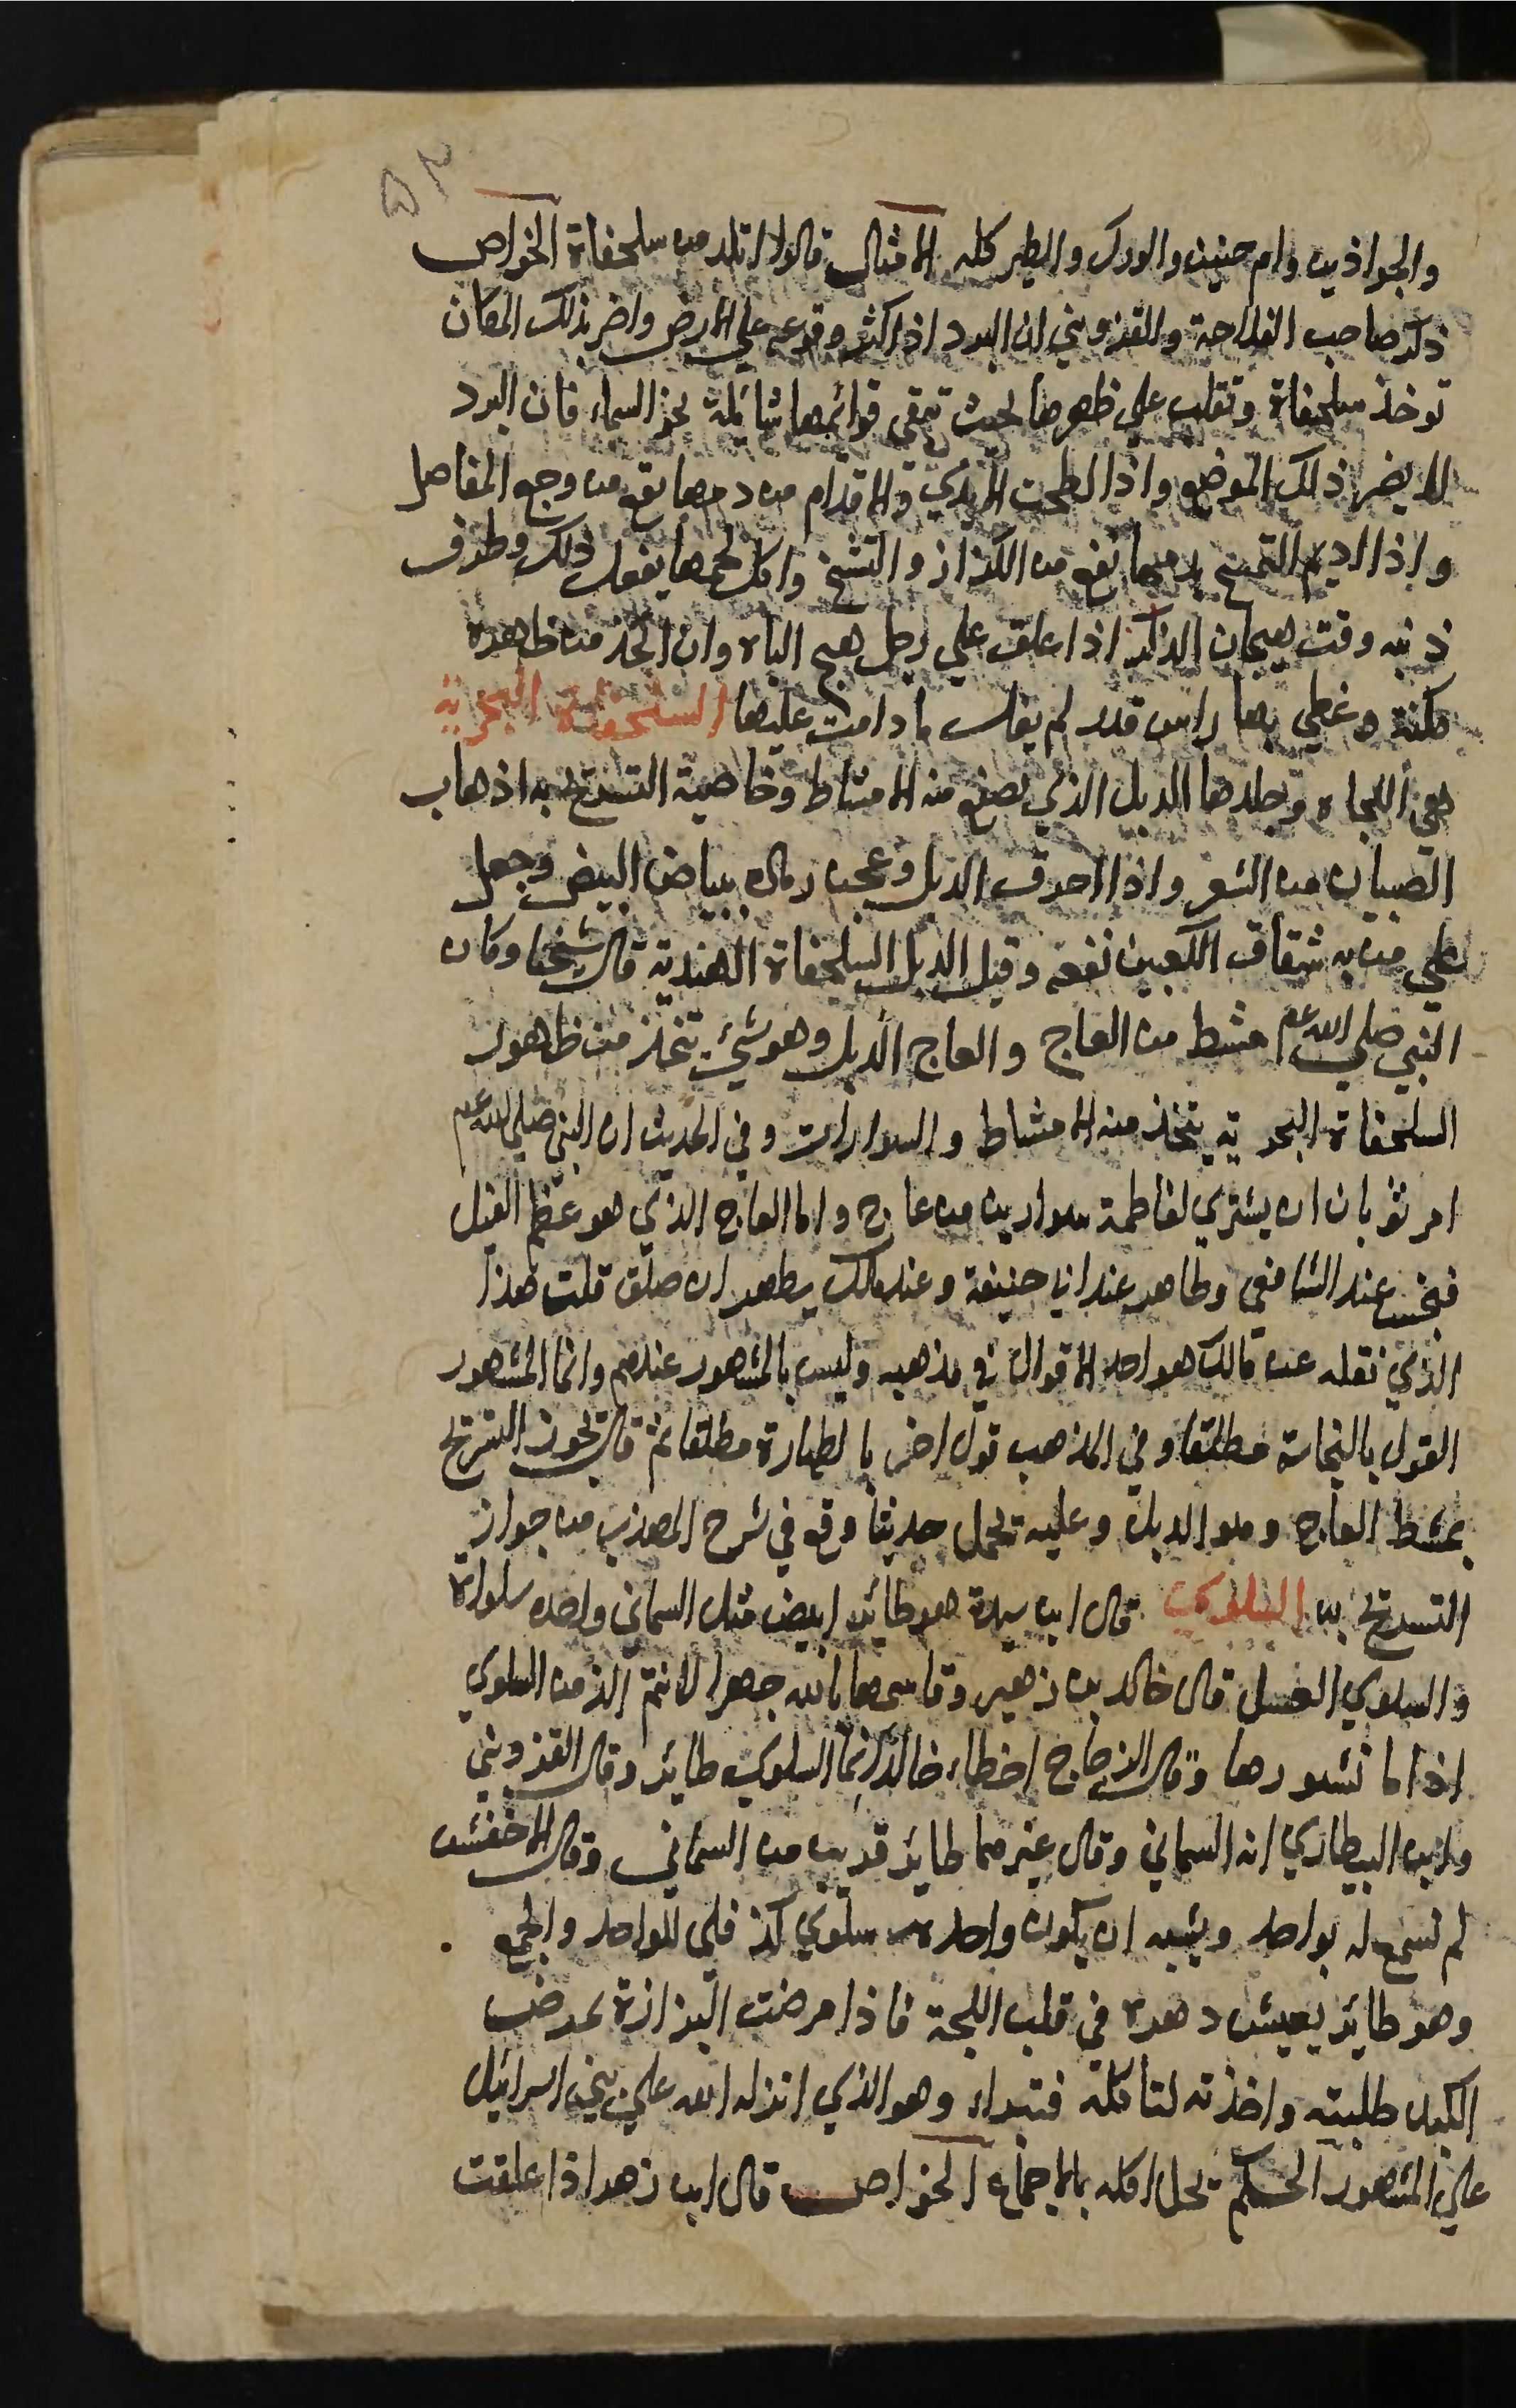 ٥٢
والجواذين وام حنين والورل والطير كله الامثال قالوا ابلد من سلحفاة الخواص
ذكر صاحب الفلاحة والقزويني ان البرد اذا كثر وقوعه علي الارض واضر بذلك المكان
توخذ سلحفاة وتقلب علي ظهرها بحيث تبقي قوائمها شائلة نحو السماء فان البرد
لا يضر ذلك الموضع واذا لطخت الايدي والاقدام من دمها نفع من وجع المفاصل
واذا اديم التمسح بدمها نفع من الكزاز والتشنج واكل لحمها يفعل ذلك وطرف
ذنبه وقت هيجان الذكر اذا علق علي رجل هيج الباه وان اتخذ من ظاهره
مكنة وغطي بها راس قدر لم يغل ما دامت عليها السلحفاة البحرية
هي اللجاه وجلدها الذبل الذي يصنع منه الامشاط وخاصية التسريح به اذهاب
الصيبان من الشعر واذا احرق الذبل وعجن رماده ببياض البيض وجعل
علي من به شقاق الكعبين نفعه وقيل الذبل السلحفاة الهندية قال شيخنا وكان
النبي صلي الله عم مشط من العاج والعاج الذبل وهو شيء يتخذ من ظهور
السلحفاة البحرية يتخذ منه الامشاط والسوارات وفي الحديث ان النبي صلي الله عم
امر ثوبان ان يشتري لفاطمة سوارين من عاج واما العاج الذي هو عظم الفيل
فنجس عند الشافعي وطاهر عند ابي حنيفة وعند مالك يطهر ان صلق قلت هذا
الذي نقله عن مالك هو احد الاقوال في مذهبه وليس بالمشهور عندهم وانما المشهور
القول بالنجاسة مطلقا وفي المذهب قول اخر بالطهارة مطلقا ثم قال يجوز التسريح
بمشط العاج وهو الذبل وعليه تحمل حديثا وقع في شرح المهذب من جواز
التسريح به السلوي قال ابن سيدة هو طائر ابيض مثل السماني واحده سلواة
والسلوي العسل قال خالد بن زهير وقاسمها بالله جهرا لانتم الذ من السلوي
اذا ما نشورها وقال الزجاج اخطاء خالد انما السلوي طائر وقال القزويني
وابن البيطاري انه السماني وقال غيرهما طائر قريب من السماني وقال الاخفش
لم نسمع له بواحد ويشبه ان يكون واحده سلوي كذفلي للواحد والجمع
وهو طائر يعيش دهره في قلب اللجة فاذا مرضت البزازة بمرض
الكبد طلبته واخذته لتاكله فتبراء وهو الذي انزله الله علي بني اسرائيل
علي المشهور الحكم يحل اكله بالاجماع الخواص قال ابن زهر اذا علقت